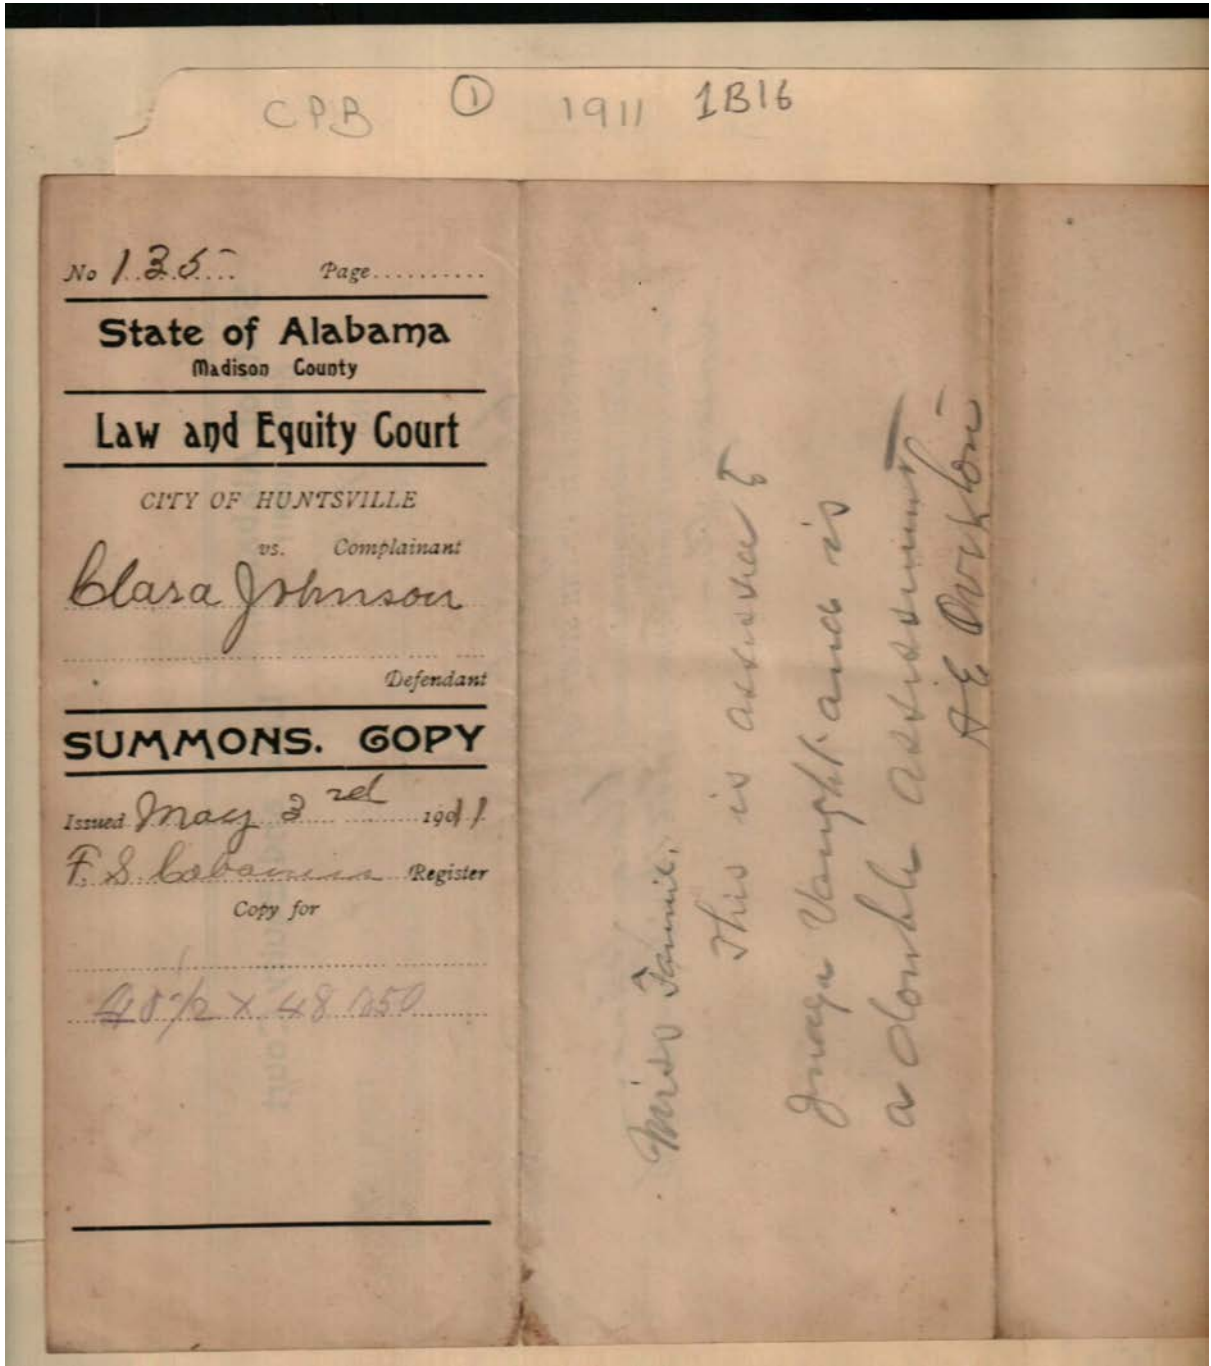 CPB ① 1911 1B16
No 135 Page..........
State of Alabama
Madison County
Law and Equity Court
CITY OF HUNTSVILLE
vs. Complainant
Clara Johnson
Defendant
SUMMONS. COPY
Issued May 3rd 1911
F. S. Cabaniss Register
Copy for
48 1/2 x 48
Miss Fannie,
This is assessed to
Vaught and is
a double assessment
A E